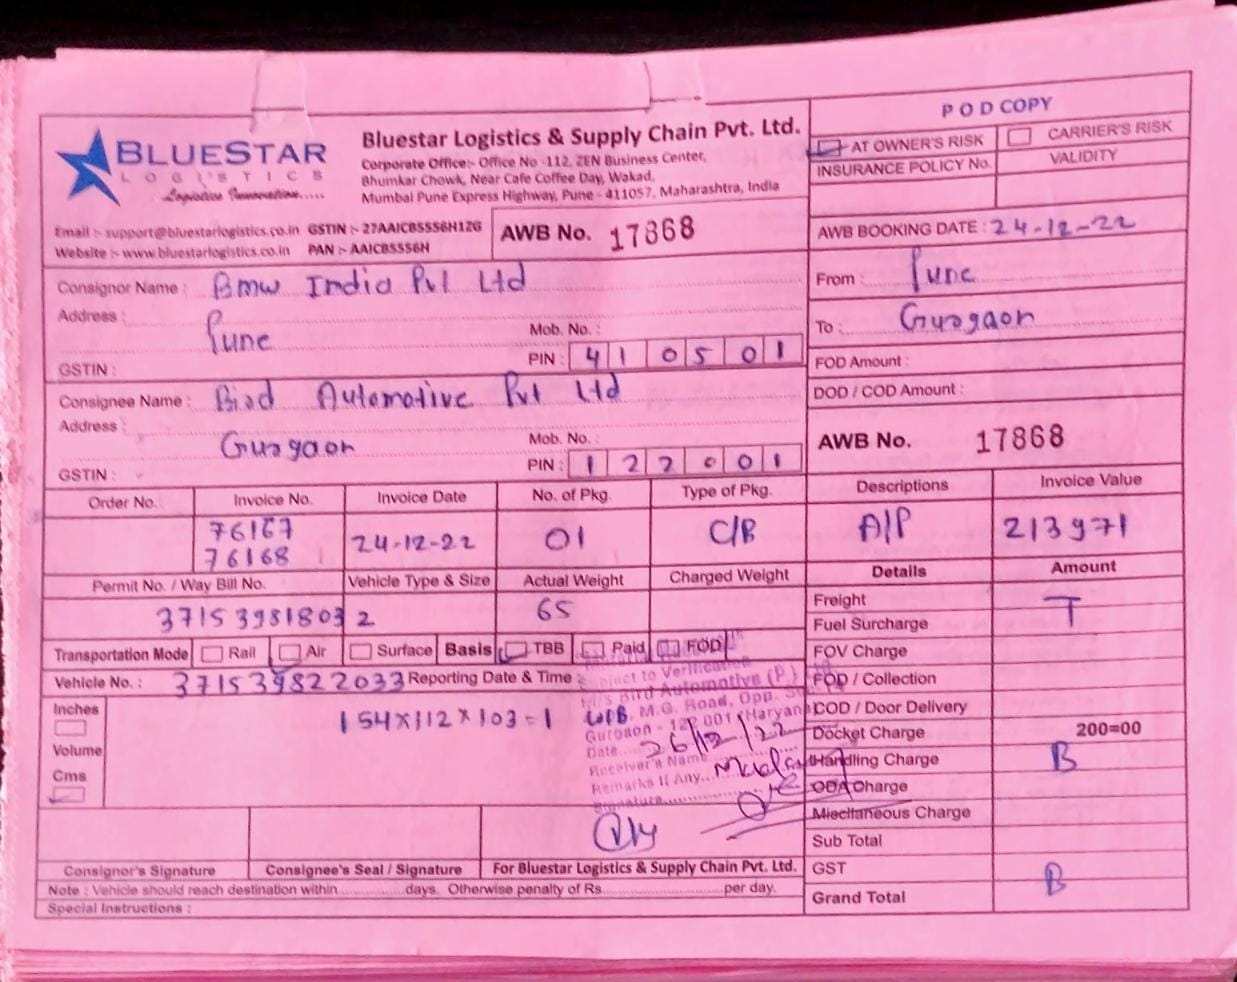 POD COPY
BLUESTAR
LOGISTICS
Logistics Innovation.....
Bluestar Logistics & Supply Chain Pvt. Ltd.
Corporate Office:- Office No -112, ZEN Business Center,
Bhumkar Chowk, Near Cafe Coffee Day, Wakad,
Mumbai Pune Express Highway, Pune - 411057, Maharashtra, India
AT OWNER'S RISK CARRIER'S RISK
INSURANCE POLICY No. VALIDITY
Email :- support@bluestarlogistics.co.in GSTIN :- 27AAICB5556H1ZG
Website :- www.bluestarlogistics.co.in PAN :- AAICB5556H
AWB No. 17868
AWB BOOKING DATE : 24-12-22
Consignor Name : Bmw India Pvt Ltd
Address : Pune
Mob. No. :
GSTIN : PIN : 410501
From : Pune
To : Gurgaon
FOD Amount :
DOD / COD Amount :
Consignee Name : Bird Automotive Pvt Ltd
Address : Gurgaon
Mob. No. :
GSTIN : PIN : 122001
AWB No. 17868
Order No. Invoice No. Invoice Date No. of Pkg. Type of Pkg. Descriptions Invoice Value
76167
76168 24-12-22 01 C/B A/P 213971
Permit No. / Way Bill No. Vehicle Type & Size Actual Weight Charged Weight Details Amount
371539818032 65
Freight T
Fuel Surcharge
Transportation Mode Rail Air Surface Basis TBB Paid FOD
FOV Charge
Vehicle No. : 371539822033 Reporting Date & Time :
FOD / Collection
Inches
Volume
Cms
154x112x103=1
Subject to Verification
M/s Bird Automotive (P.)
M.G. Road, Opp.
Gurgaon - 122001 (Haryana)
Date 26/12/22
Receiver's Name
Remarks If Any
Signature
COD / Door Delivery
Docket Charge 200=00
Handling Charge B
ODA Charge
Miscllaneous Charge
Sub Total
GST
Grand Total B
Consignor's Signature Consignee's Seal / Signature For Bluestar Logistics & Supply Chain Pvt. Ltd.
Note : Vehicle should reach destination within..............days. Otherwise penalty of Rs.........................per day.
Special Instructions :